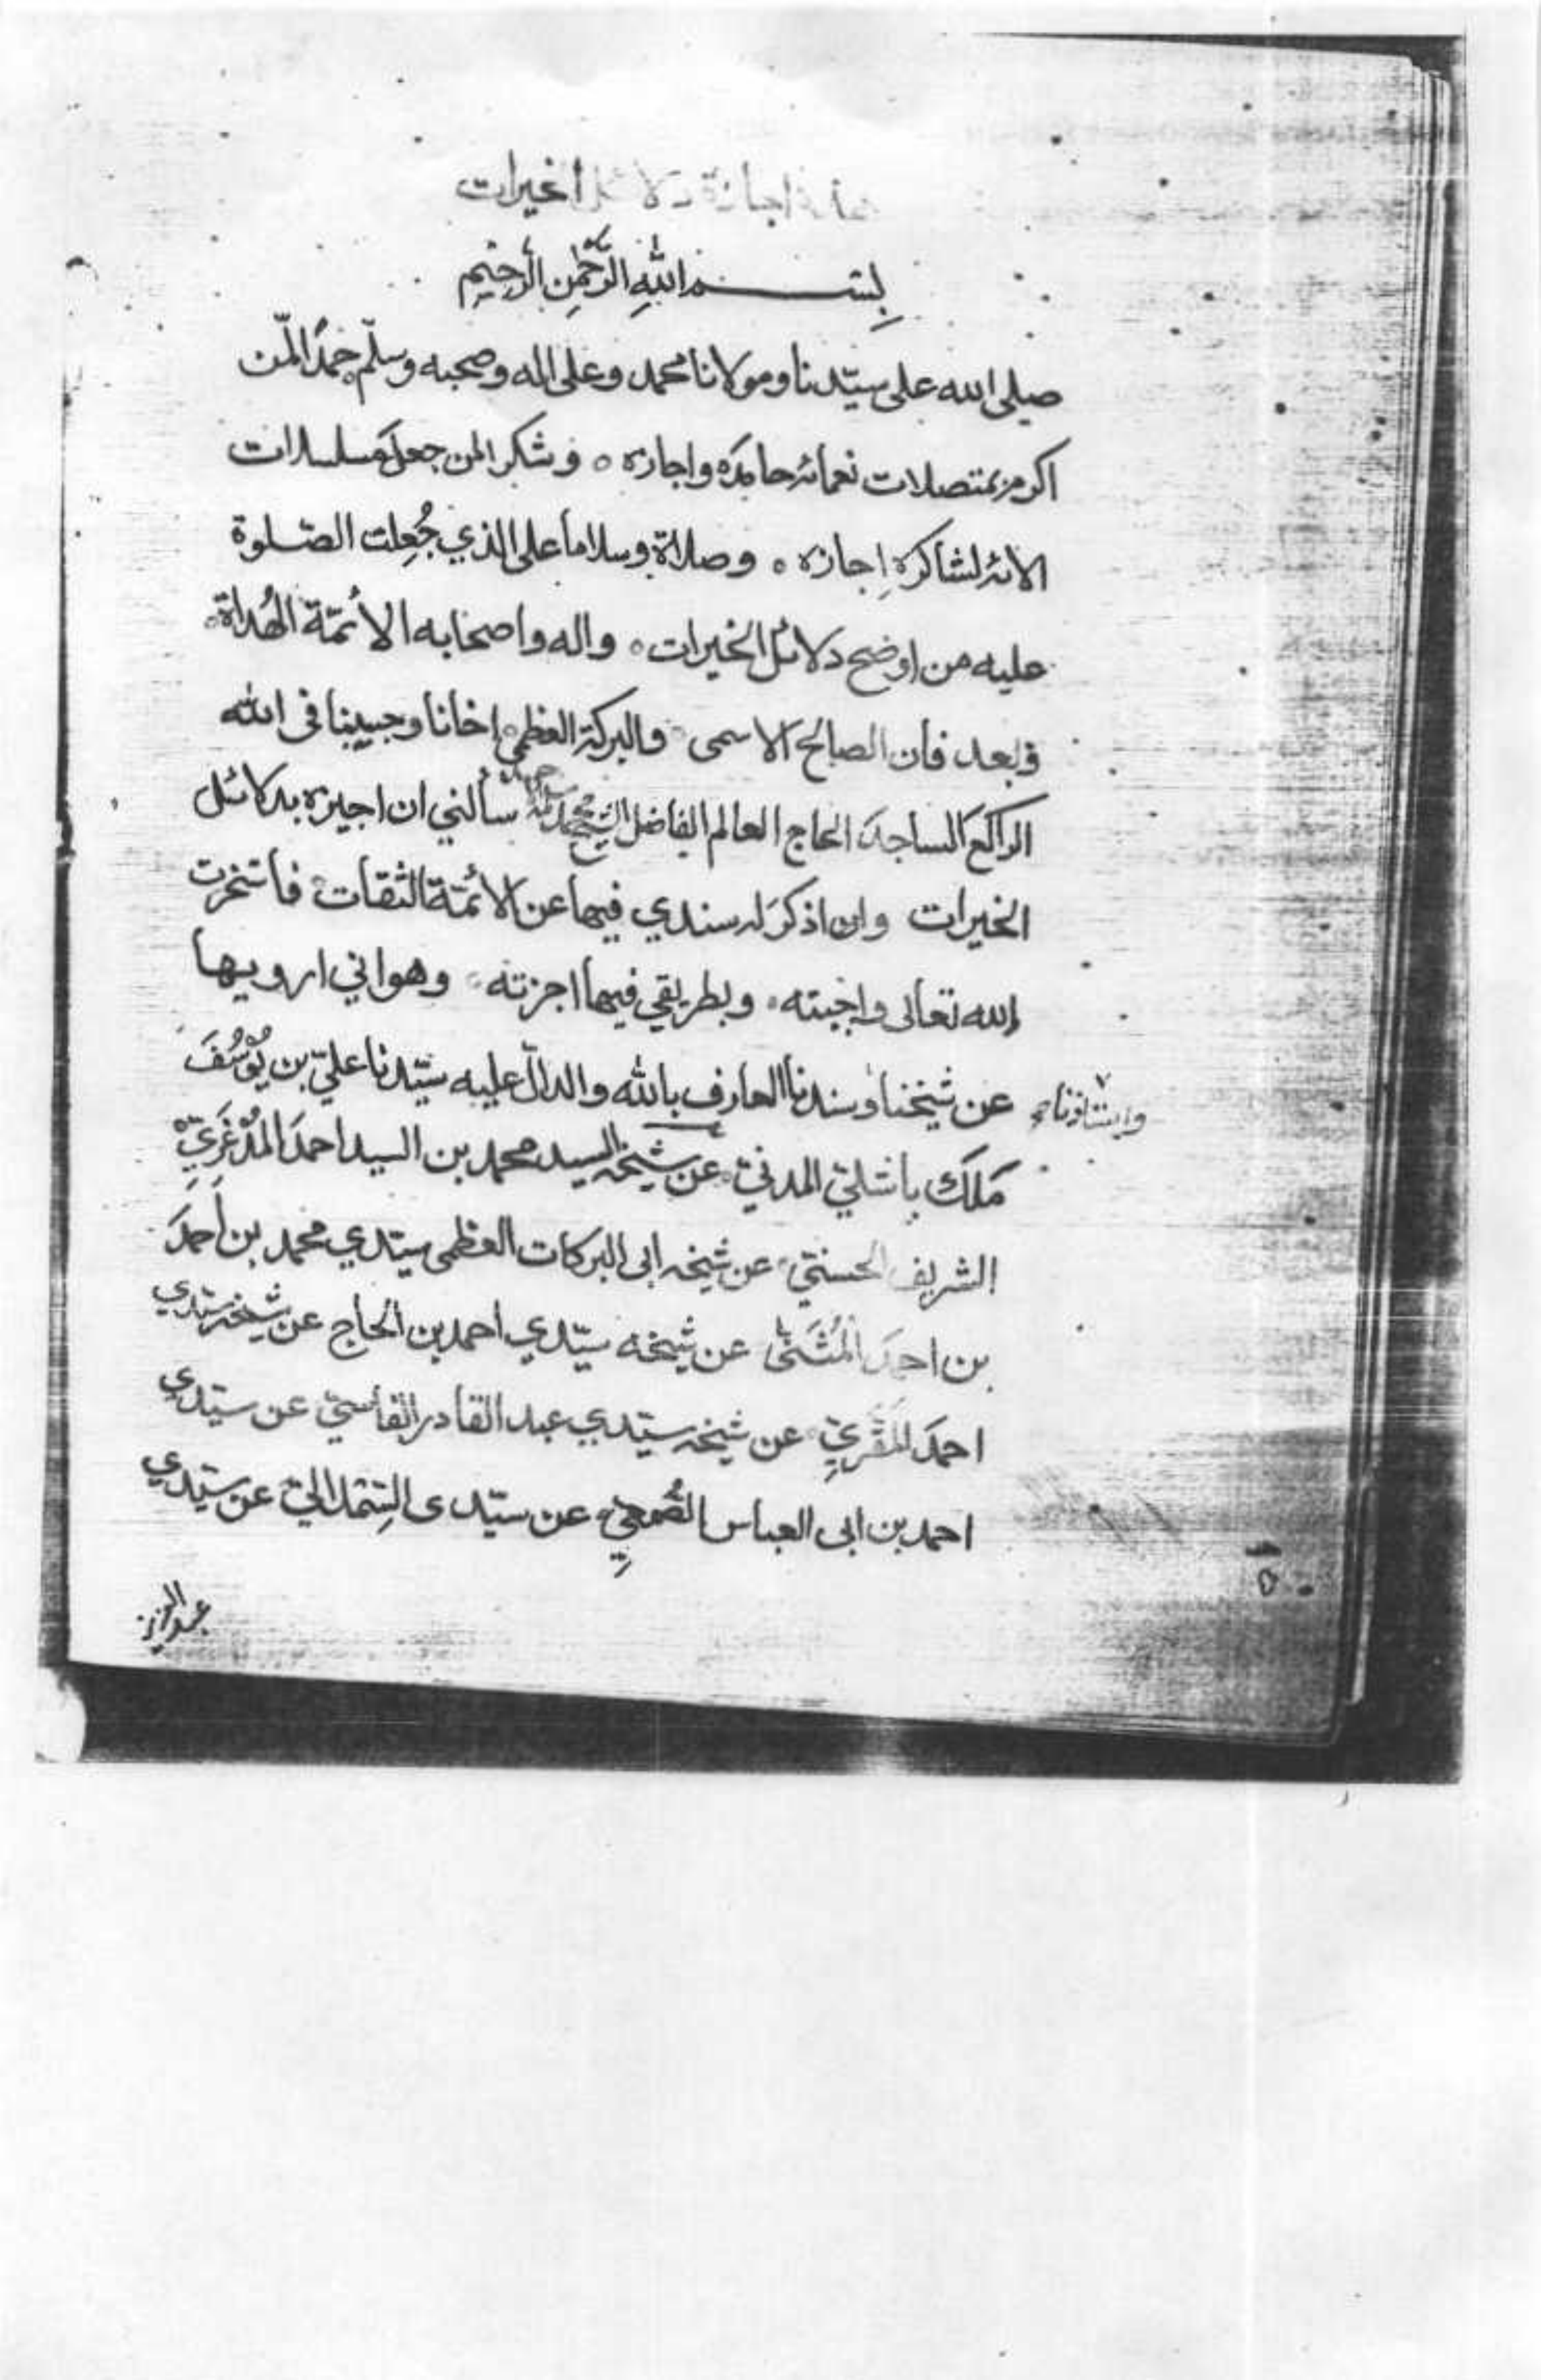 هذه اجازة دلائل الخيرات
بِسْم اللهِ الرَّحْمٰنِ الرَّحِيْمِ
صلى الله على سيّدنا ومولانا محمد وعلى اله وصحبه وسلّم حمدًا لمن
اكرم بمتصلات نعمائه حامدَه واجازه ٥ وشكرا لمن جعل مسلسلات
الائه لشاكره إِجازه ٥ وصلاة وسلاما على الذي جُعِلت الصّلوة
عليه من اوضح دلائل الخيرات ٥ واله واصحابه الأئمّة الهُداة ٥
وبعد فان الصالح الاسمى والبركة العظمى اخانا وحبيبنا فى الله
الراكعَ الساجدَ الحاج العالم الفاضل الشيخ محمد سألني ان اجيزه بدلائل
الخيرات وان اذكرَ له سندي فيها عن الأئمّة الثقات فاستخرت
الله تعالى واجبته ٥ وبطريقي فيها اجزته ٥ وهو اني ارويها
عن شيخنا وسندنا العارف بالله والدالّ عليه سيّدنا عليّ بن يُوْسُفَ
واستاذنا
مَلَك باشلي المدنيّ عن شيخه السيد محمد بن السيد احمدَ المُدْغَرِيّ
الشريف الحسنيّ عن شيخه ابى البركات العظمى سيّدي محمد بن أحمدَ
بن احمدَ المُثَنَّى عن شيخه سيّدي احمد بن الحاج عن شيخه سيّدي
احمدَ المَقَّرِيِّ عن شيخه سيّدي عبد القادر الفاسيّ عن سيّدي
احمد بن ابى العباس الصُّمعِيِّ عن سيّدى السِّملاليّ عن سيّدي
عبد العزيز